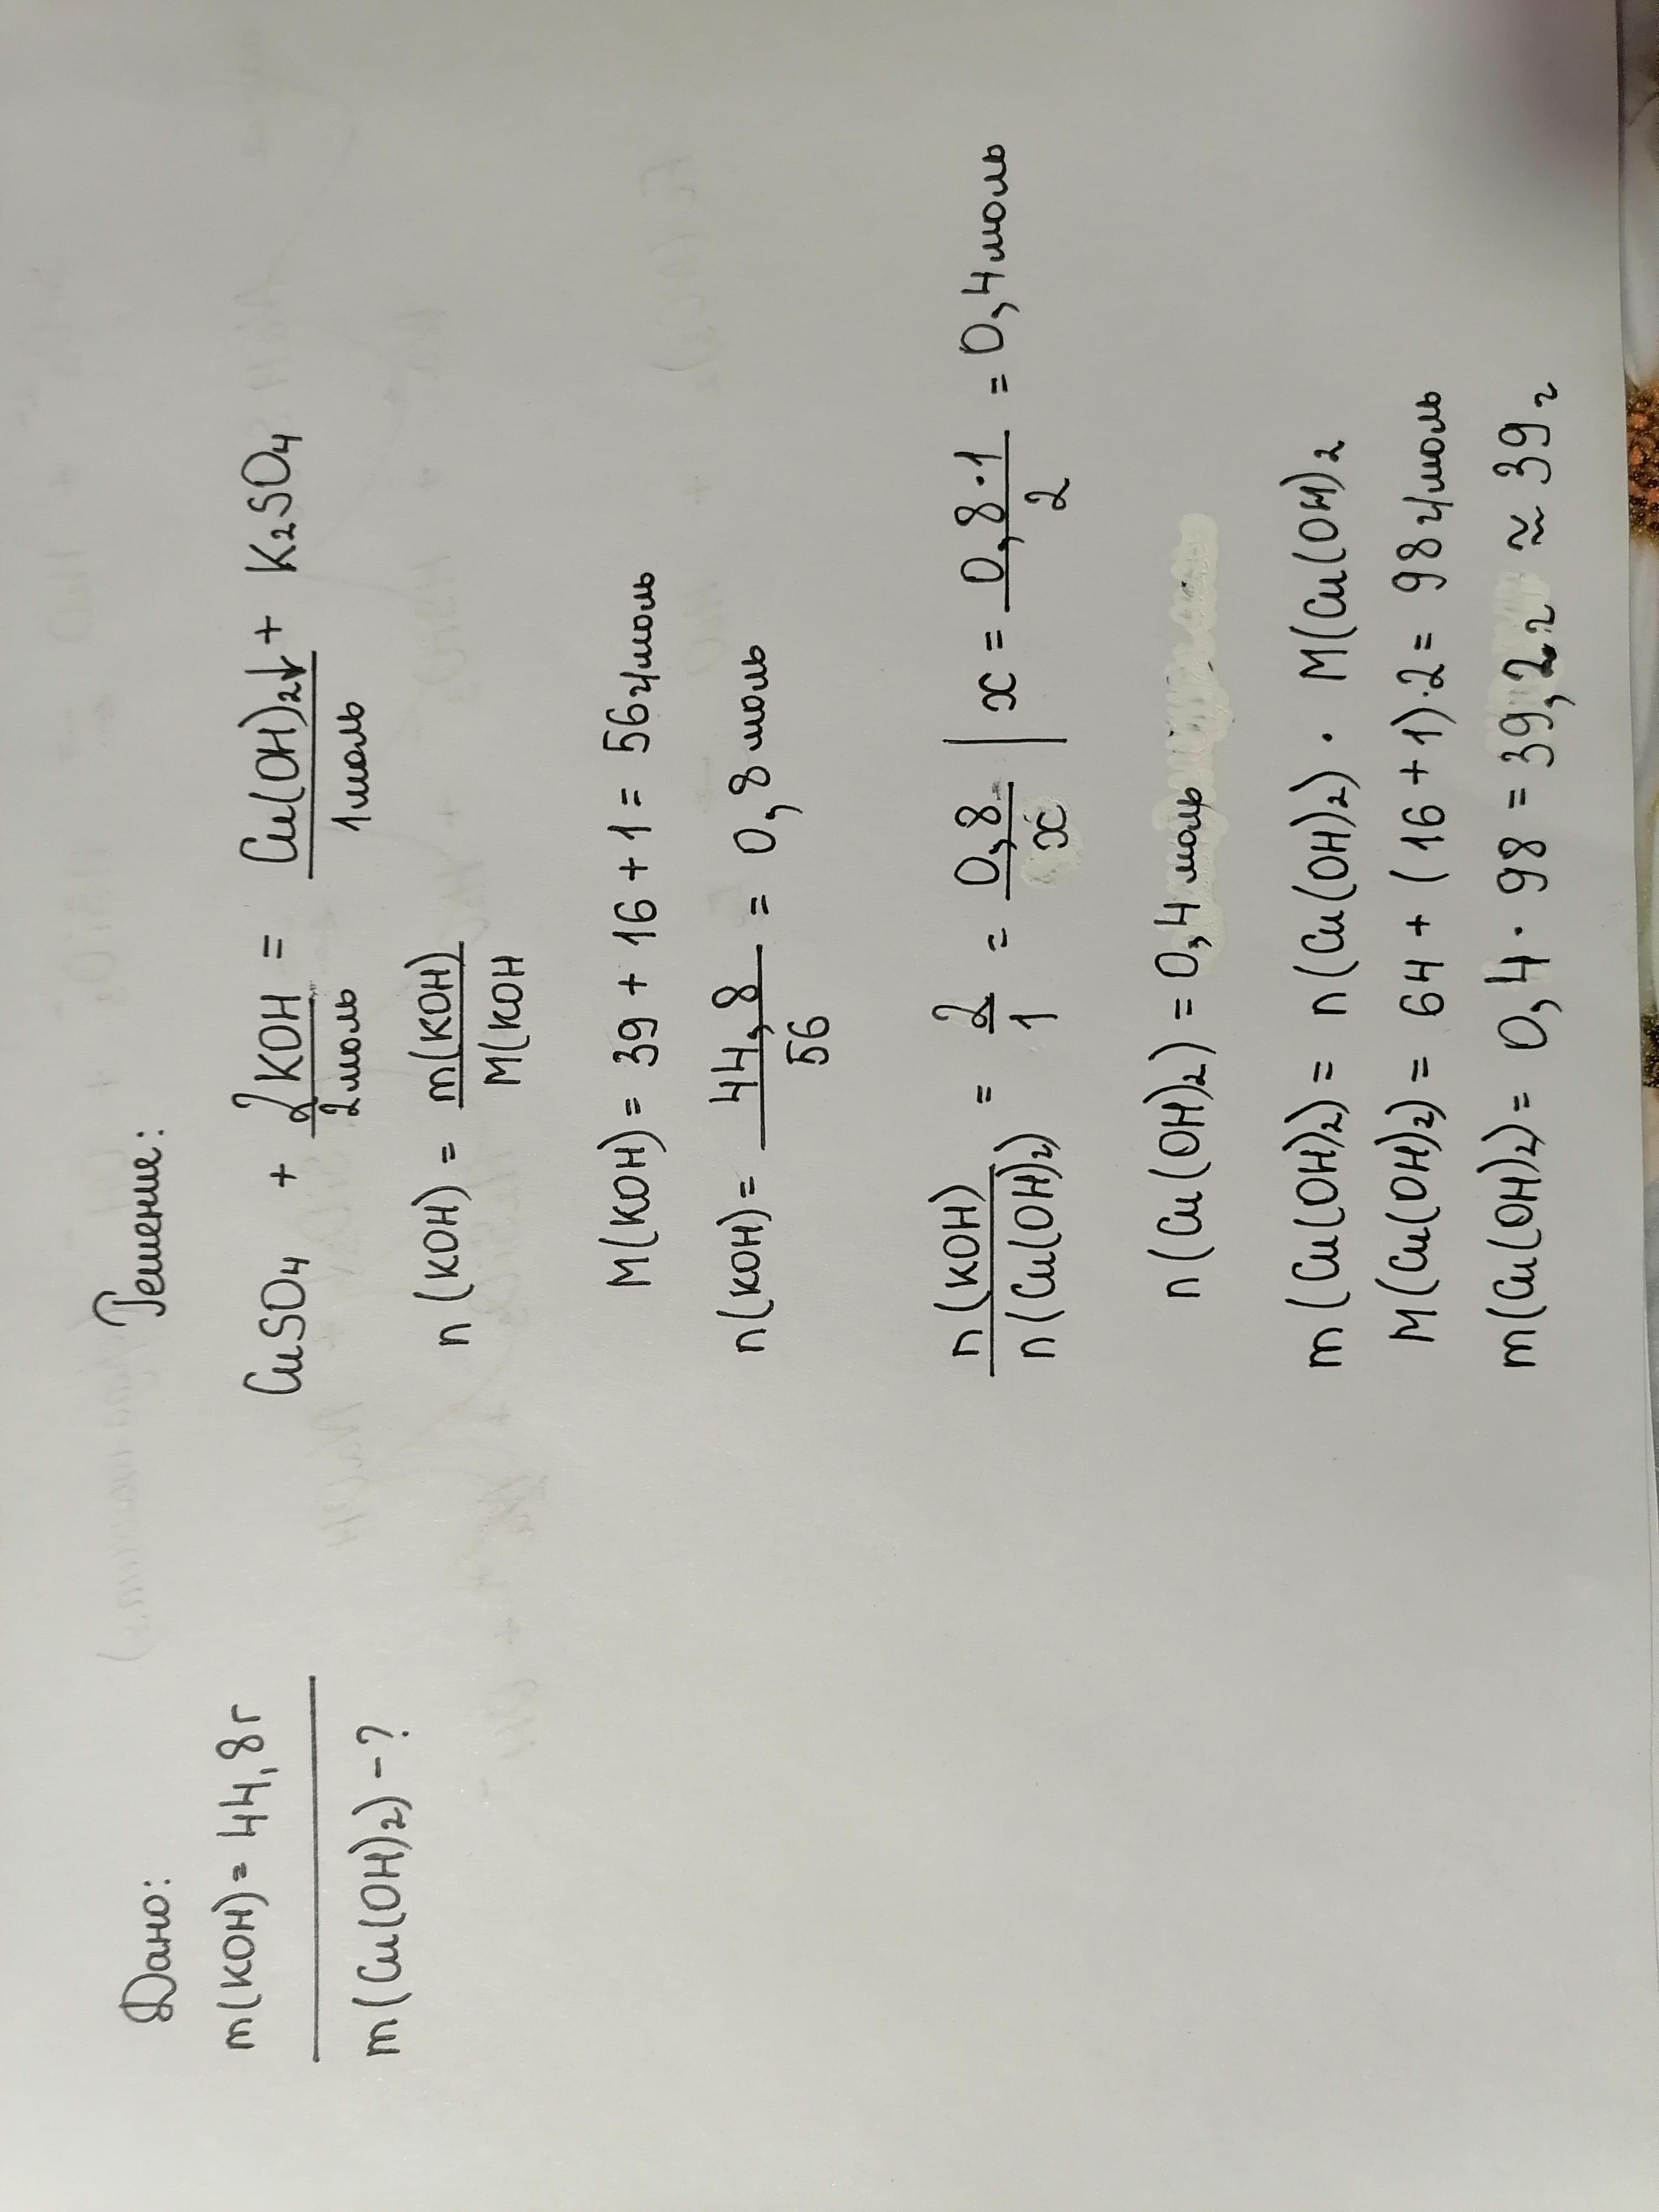 Дано:
m(KOH) = 44,8 г
m(Cu(OH)₂) - ?
Решение:
CuSO₄ + 2KOH = Cu(OH)₂↓ + K₂SO₄
2 моль 1 моль
n(KOH) = m(KOH) / M(KOH
M(KOH) = 39 + 16 + 1 = 56 г/моль
n(KOH) = 44,8 / 56 = 0,8 моль
n(KOH) / n(Cu(OH)₂) = 2 / 1 = 0,8 / x | x = 0,8 · 1 / 2 = 0,4 моль
n(Cu(OH)₂) = 0,4 моль
m(Cu(OH)₂) = n(Cu(OH)₂) · M(Cu(OH)₂
M(Cu(OH)₂) = 64 + (16 + 1)·2 = 98 г/моль
m(Cu(OH)₂) = 0,4 · 98 = 39,2 г ≈ 39 г